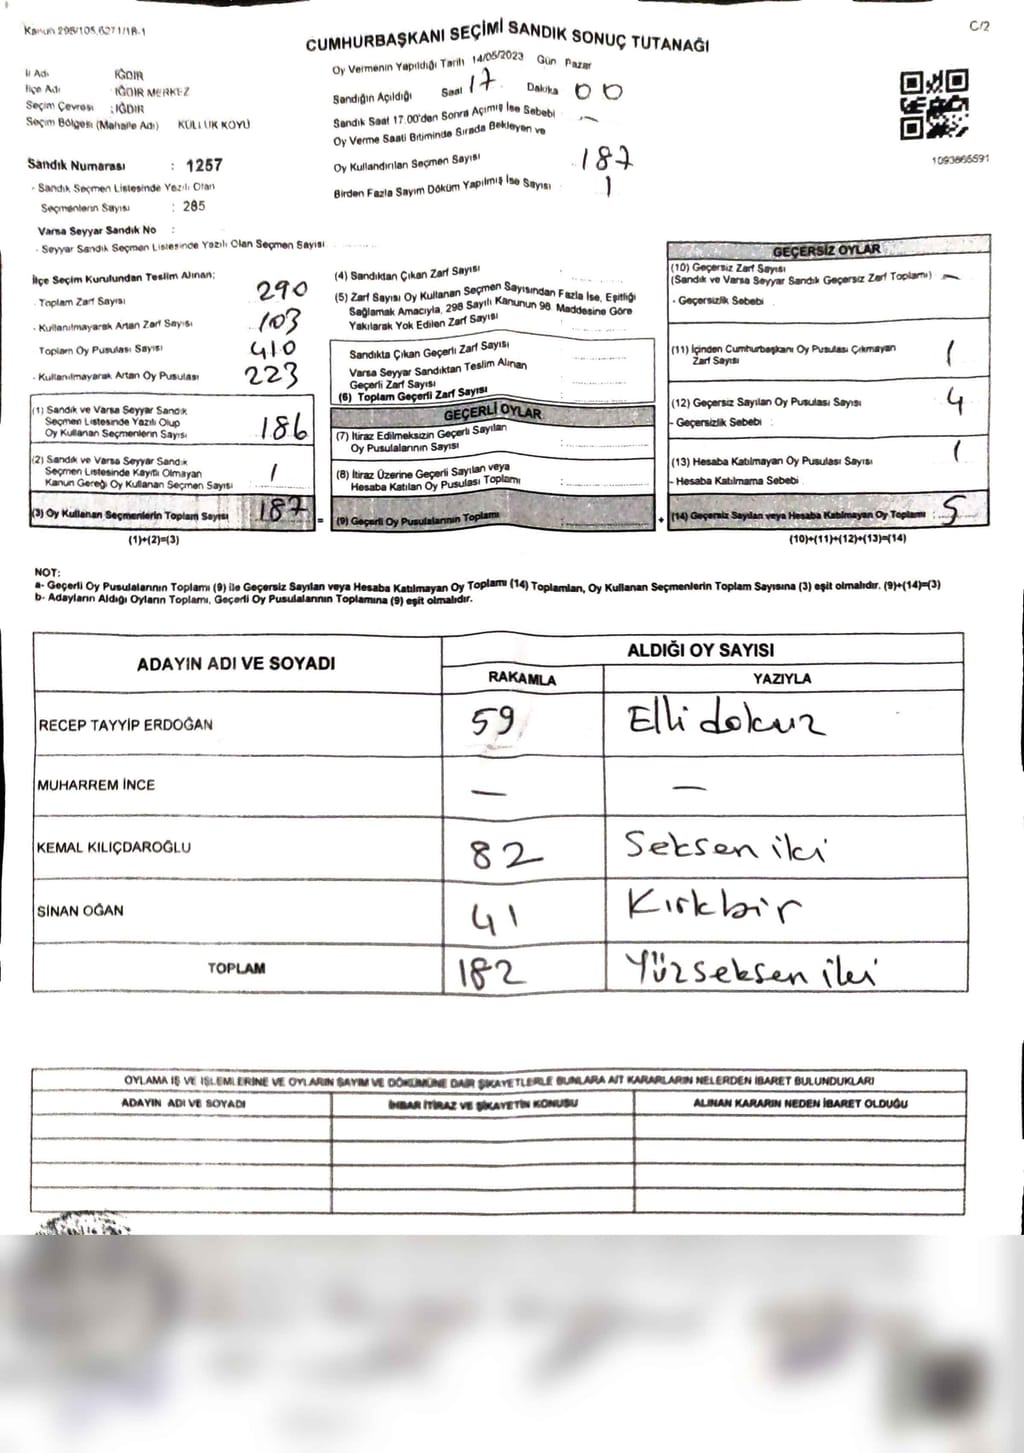 Kanun 298/105,6271/18-1
C/2
CUMHURBAŞKANI SEÇİMİ SANDIK SONUÇ TUTANAĞI
İl Adı : IĞDIR
İlçe Adı : IĞDIR MERKEZ
Seçim Çevresi : IĞDIR
Seçim Bölgesi (Mahalle Adı) KÜLLÜK KÖYÜ
Sandık Numarası : 1257
- Sandık Seçmen Listesinde Yazılı Olan
Seçmenlerin Sayısı : 285
Varsa Seyyar Sandık No :
- Seyyar Sandık Seçmen Listesinde Yazılı Olan Seçmen Sayısı
Oy Vermenin Yapıldığı Tarih 14/05/2023 Gün Pazar
Sandığın Açıldığı Saat 17 Dakika 00
Sandık Saat 17.00'den Sonra Açımış İse Sebebi —
Oy Verme Saati Bitiminde Sırada Bekleyen ve
Oy Kullandırılan Seçmen Sayısı 187
Birden Fazla Sayım Döküm Yapılmış İse Sayısı 1
1093865591
İlçe Seçim Kurulundan Teslim Alınan;
- Toplam Zarf Sayısı 290
- Kullanılmayarak Artan Zarf Sayısı 103
Toplam Oy Pusulası Sayısı 410
- Kullanılmayarak Artan Oy Pusulası 223
(1) Sandık ve Varsa Seyyar Sandık
Seçmen Listesinde Yazılı Olup
Oy Kullanan Seçmenlerin Sayısı 186
(2) Sandık ve Varsa Seyyar Sandık
Seçmen Listesinde Kayıtlı Olmayan
Kanun Gereği Oy Kullanan Seçmen Sayısı 1
(3) Oy Kullanan Seçmenlerin Toplam Sayısı 187 =
(1)+(2)=(3)
(4) Sandıktan Çıkan Zarf Sayısı
(5) Zarf Sayısı Oy Kullanan Seçmen Sayısından Fazla İse, Eşitliği
Sağlamak Amacıyla, 298 Sayılı Kanunun 98. Maddesine Göre
Yakılarak Yok Edilen Zarf Sayısı
Sandıkta Çıkan Geçerli Zarf Sayısı
Varsa Seyyar Sandıktan Teslim Alınan
Geçerli Zarf Sayısı
(6) Toplam Geçerli Zarf Sayısı
GEÇERLİ OYLAR
(7) İtiraz Edilmeksizin Geçerli Sayılan
Oy Pusulalarının Sayısı
(8) İtiraz Üzerine Geçerli Sayılan veya
Hesaba Katılan Oy Pusulası Toplamı
(9) Geçerli Oy Pusulalarının Toplamı +
GEÇERSİZ OYLAR
(10) Geçersiz Zarf Sayısı
(Sandık ve Varsa Seyyar Sandık Geçersiz Zarf Toplamı) —
- Geçersizlik Sebebi
(11) İçinden Cumhurbaşkanı Oy Pusulası Çıkmayan
Zarf Sayısı 1
(12) Geçersiz Sayılan Oy Pusulası Sayısı 4
- Geçersizlik Sebebi :
(13) Hesaba Katılmayan Oy Pusulası Sayısı 1
- Hesaba Katılmama Sebebi
(14) Geçersiz Sayılan veya Hesaba Katılmayan Oy Toplamı : 5
(10)+(11)+(12)+(13)=(14)
NOT:
a- Geçerli Oy Pusulalarının Toplamı (9) ile Geçersiz Sayılan veya Hesaba Katılmayan Oy Toplamı (14) Toplamları, Oy Kullanan Seçmenlerin Toplam Sayısına (3) eşit olmalıdır. (9)+(14)=(3)
b- Adayların Aldığı Oyların Toplamı, Geçerli Oy Pusulalarının Toplamına (9) eşit olmalıdır.
ADAYIN ADI VE SOYADI
ALDIĞI OY SAYISI
RAKAMLA YAZIYLA
RECEP TAYYİP ERDOĞAN 59 Elli dokuz
MUHARREM İNCE — —
KEMAL KILIÇDAROĞLU 82 Seksen iki
SİNAN OĞAN 41 Kırkbir
TOPLAM 182 Yüzseksen iki
OYLAMA İŞ VE İŞLEMLERİNE VE OYLARIN SAYIM VE DÖKÜMÜNE DAİR ŞİKAYETLERLE BUNLARA AİT KARARLARIN NELERDEN İBARET BULUNDUKLARI
ADAYIN ADI VE SOYADI İHBAR İTİRAZ VE ŞİKAYETİN KONUSU ALINAN KARARIN NEDEN İBARET OLDUĞU